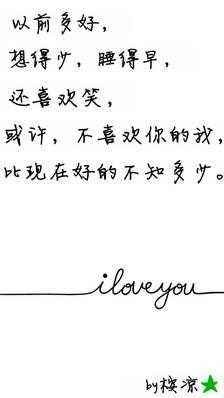 以前多好，
想得少，睡得早，
还喜欢笑，
或许，不喜欢你的我，
比现在好的不知多少。
iloveyou
by樱凉